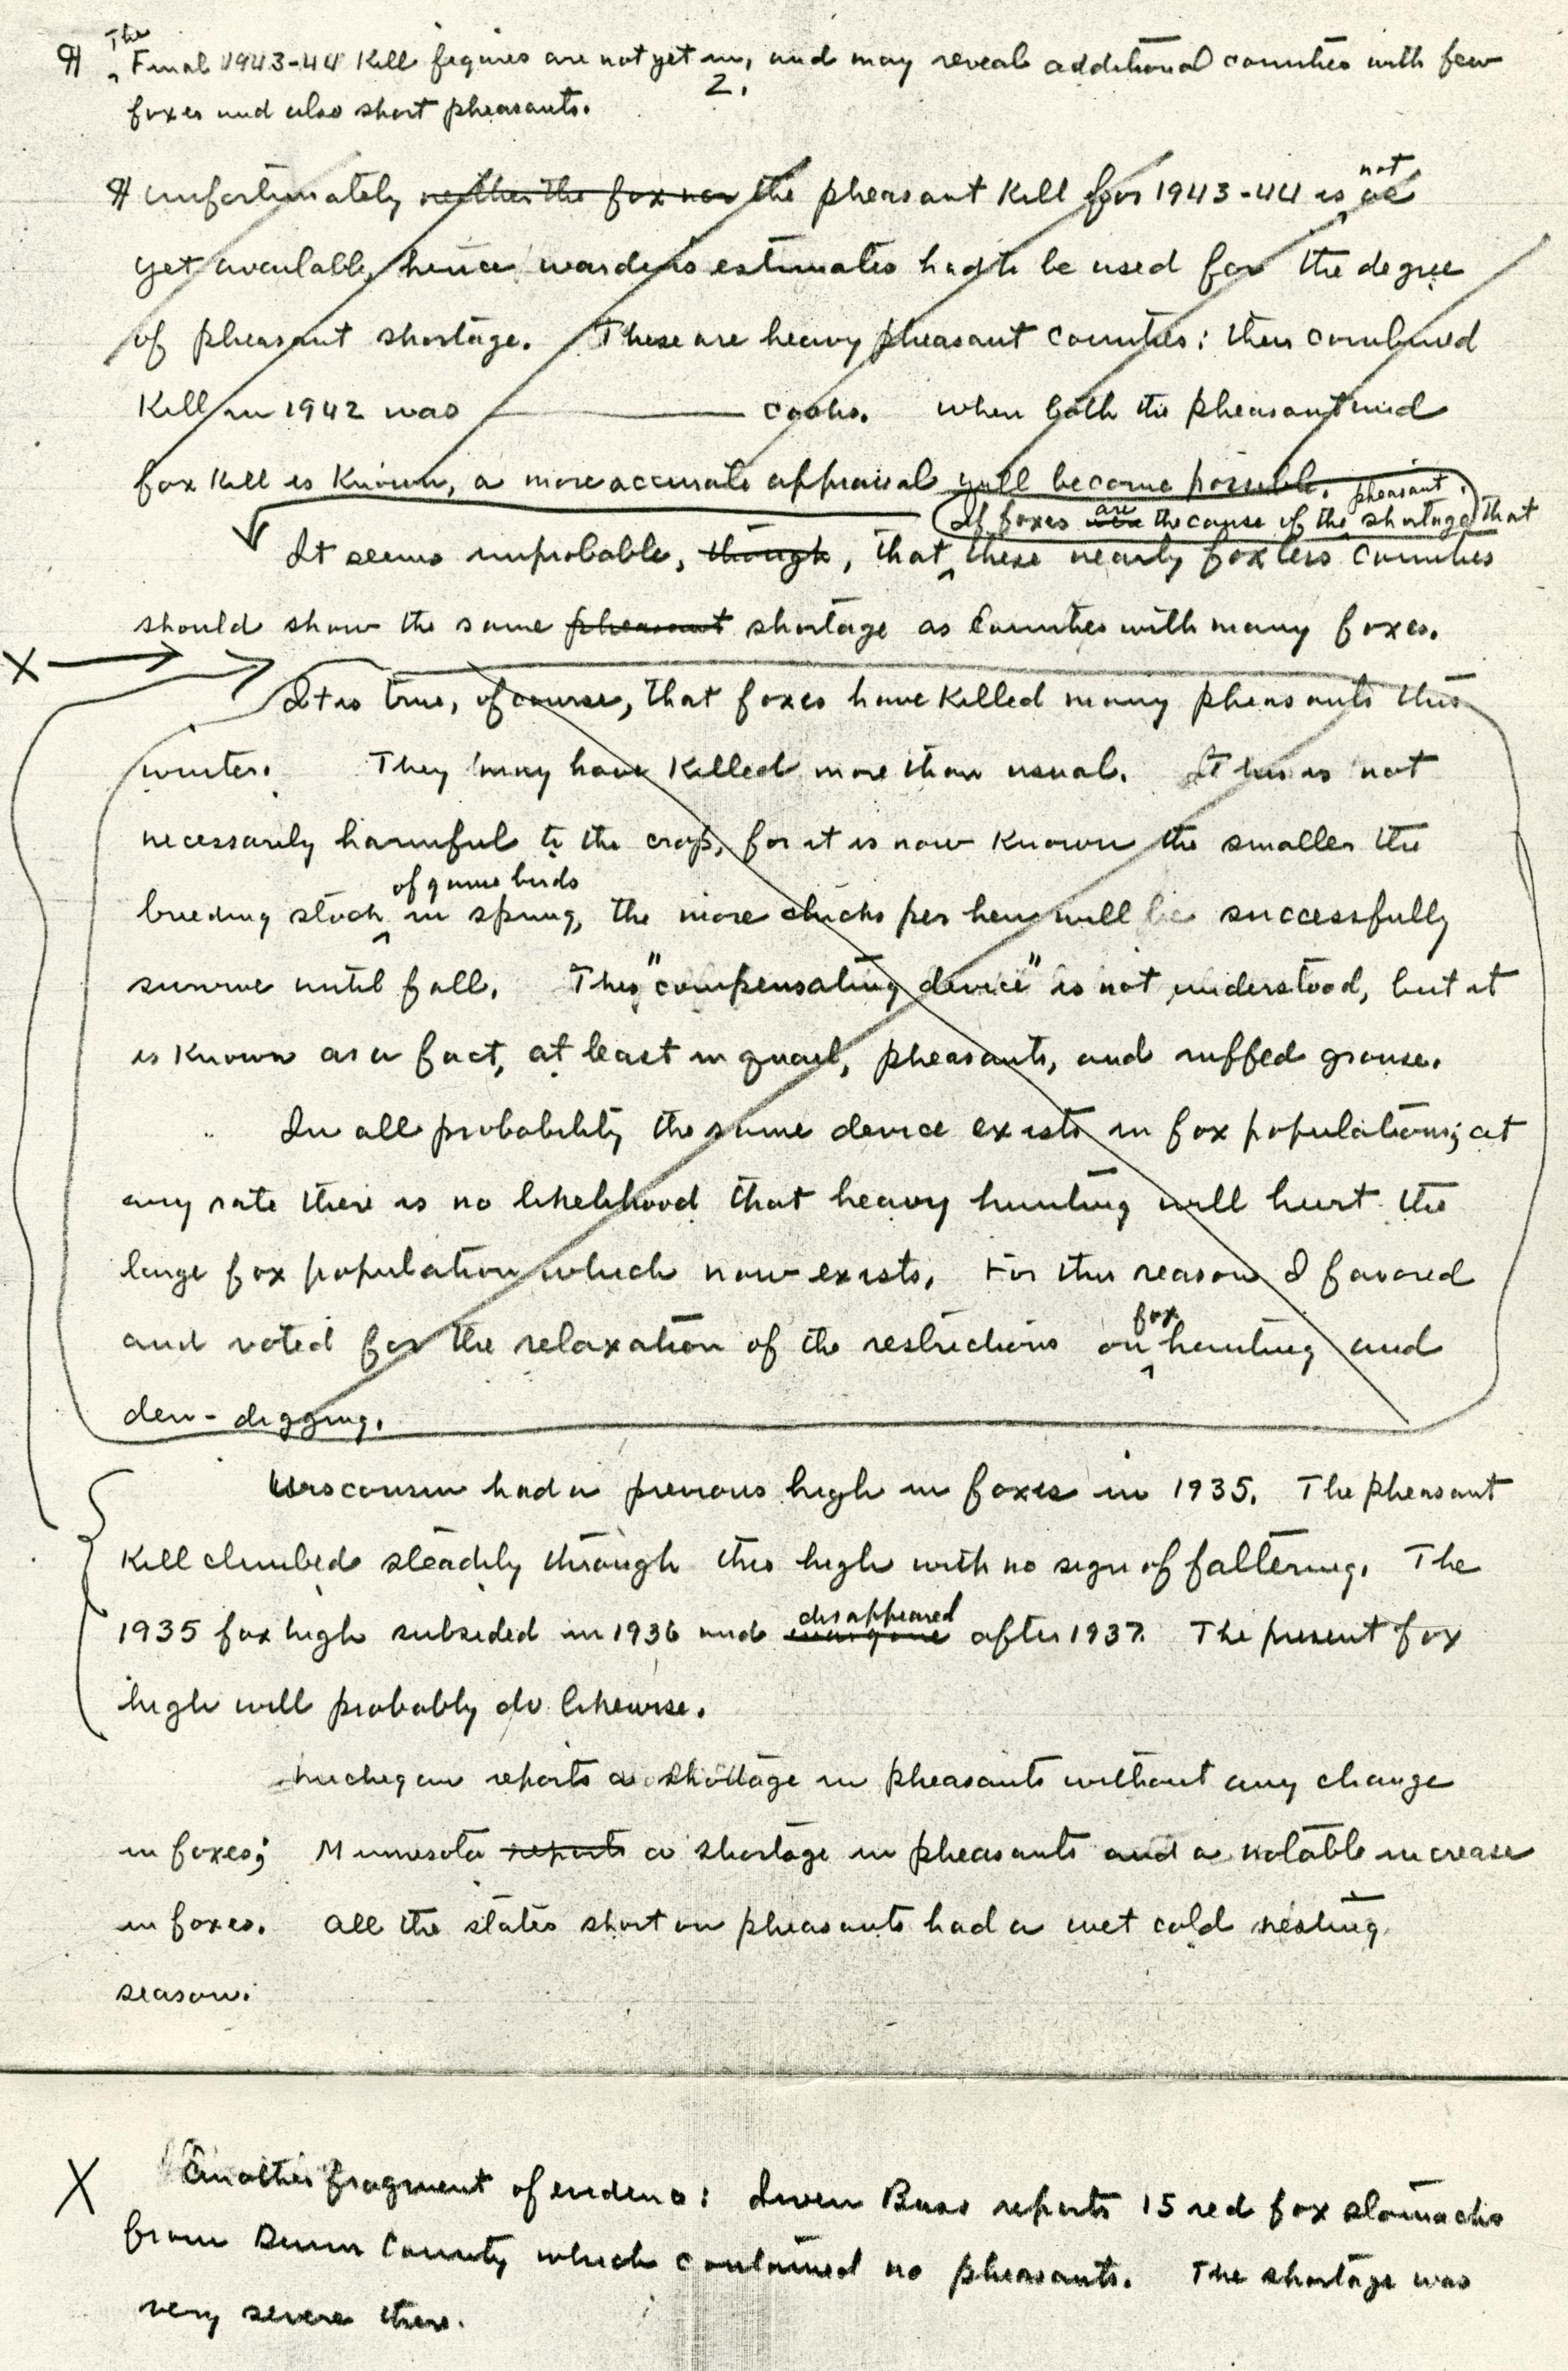 ¶ The Final 1943-44 Kill figures are not yet in, and may reveal additional counties with few
2.
foxes and also short pheasants.
¶ Unfortunately neither the fox nor the pheasant kill for 1943-44 is not
yet available, hence warden's estimates had to be used for the degree
of pheasant shortage. These are heavy pheasant counties: their combined
Kill in 1942 was ———— cocks. When both the pheasant and
fox kill is known, a more accurate appraisal will become possible.
If foxes are the cause of the pheasant shortage, that
It seems improbable, though, that these nearly foxless counties
should show the same pheasant shortage as counties with many foxes.
X
It is true, of course, that foxes have killed many pheasants this
winter. They may have killed more than usual. This is not
necessarily harmful to the crop, for it is now known the smaller the
of game birds
breeding stock in spring, the more chicks per hen will be successfully
survive until fall. This "compensating device" is not understood, but it
is known as a fact, at least in quail, pheasants, and ruffed grouse.
In all probability the same device exists in fox populations; at
any rate there is no likelihood that heavy hunting will hurt the
large fox population which now exists. For this reason I favored
and voted for the relaxation of the restrictions on fox hunting and
den-digging.
Wisconsin had a previous high in foxes in 1935. The pheasant
kill climbed steadily through this high with no sign of faltering. The
1935 fox high subsided in 1936 and was gone disappeared after 1937. The present fox
high will probably do likewise.
Michigan reports a shortage in pheasants without any change
in foxes; Minnesota reports a shortage in pheasants and a notable increase
in foxes. All the states short on pheasants had a wet cold nesting
season.
X Another fragment of evidence: Irven Buss reports 15 red fox stomachs
from Dunn County which contained no pheasants. The shortage was
very severe there.